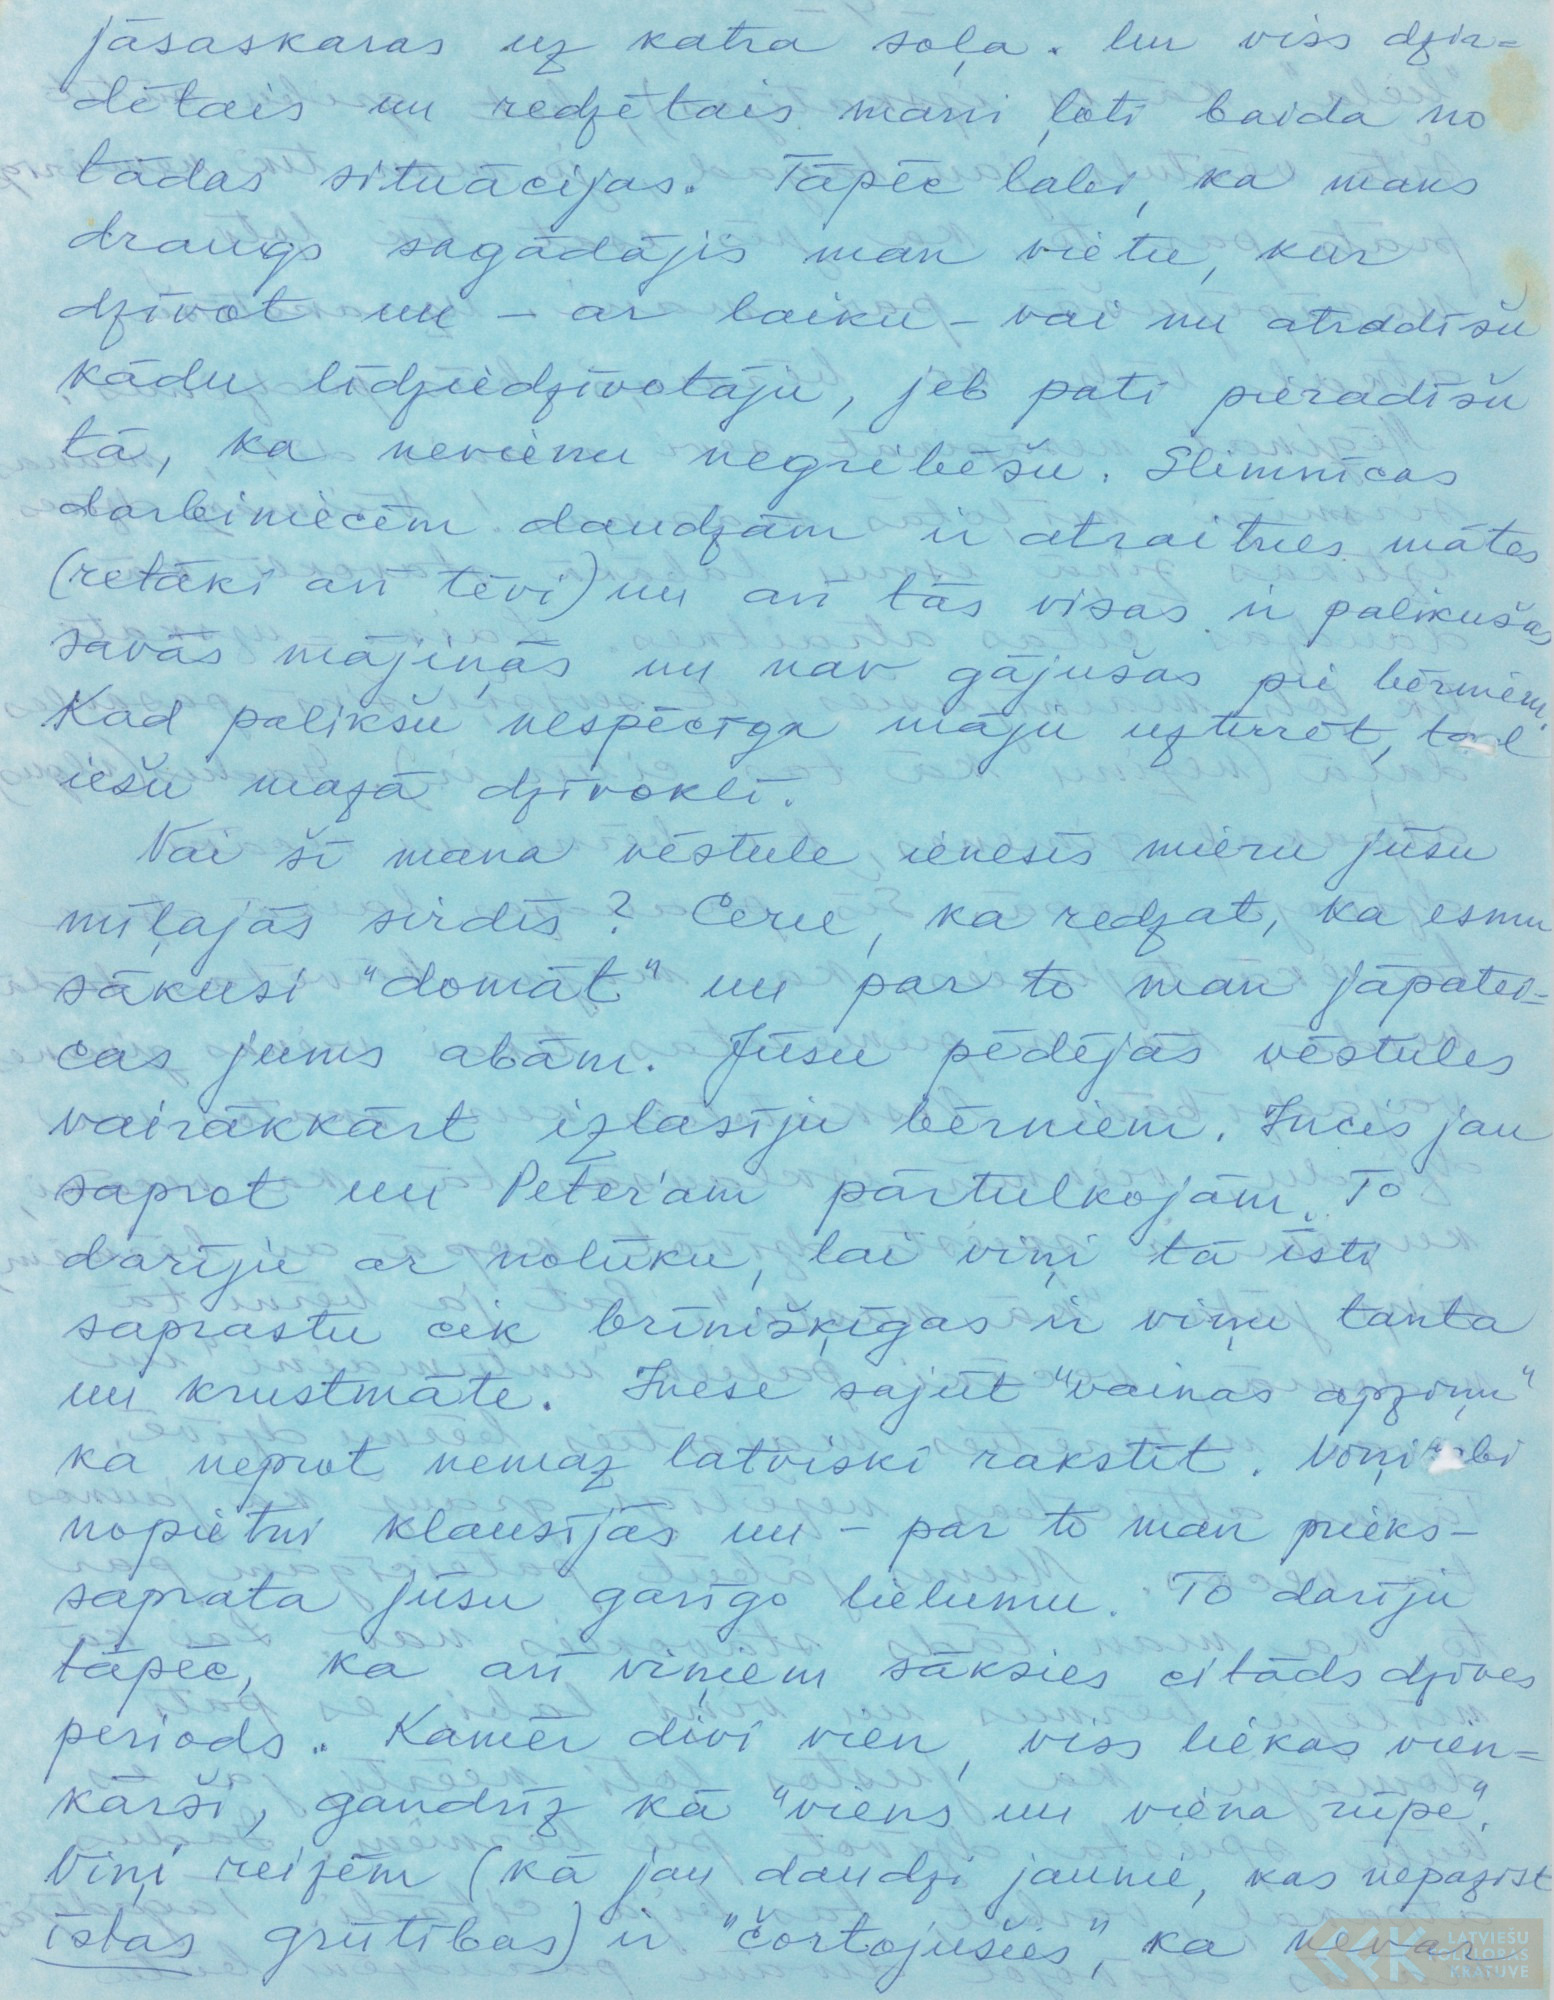 jāsaskaras uz katra soļa. Un viss dzir=
dētais un redzētais mani ļoti baida no
tādas situācijas. Tāpēc labi, ka mans
draugs sagādājis man vietu, kur
dzīvot un – ar laiku – vai nu atradīšu
kādu līdziedzīvotāju, jeb pati pieradīšu
tā, ka nevienu negribēšu. Slimnīcas
darbiniecēm daudzām ir atraitnes mātes
(retāki arī tēvi) un arī tās visas ir palikušas
savās mājiņās un nav gājušas pie bērniem.
Kad palikšu nespēcīga māju uzturēt, tad
iešu mazā dzīvoklī.
Vai šī mana vēstule ienesīs mieru jūsu
mīļajās sirdīs? Ceru, ka redzat, ka esmu
sākusi "domāt" un par to man jāpatei=
cas jums abām. Jūsu pēdējās vēstules
vairākkārt izlasīju bērniem. Incis jau
saprot un Peter'am pārtulkojām. To
darīju ar nolūku, lai viņi tā īsti
saprastu cik brīnišķīgas ir viņu tanta
un krustmāte. Inese sajūt "vainas apziņu"
ka neprot nemaz latviski rakstīt. Viņi abi
nopietni klausījās un – par to man prieks –
saprata jūsu garīgo lielumu. To darīju
tāpēc, ka arī viņiem sāksies citāds dzīves
periods. Kamēr divi vien, viss liekas vien=
kārši, gandrīz kā "viens un viena rūpe".
Viņi reizēm (kā jau daudzi jaunie, kas nepazīst
īstas grūtības) ir "čortojušies", ka nevar
LATVIEŠU
FOLKLORAS
KRĀTUVE